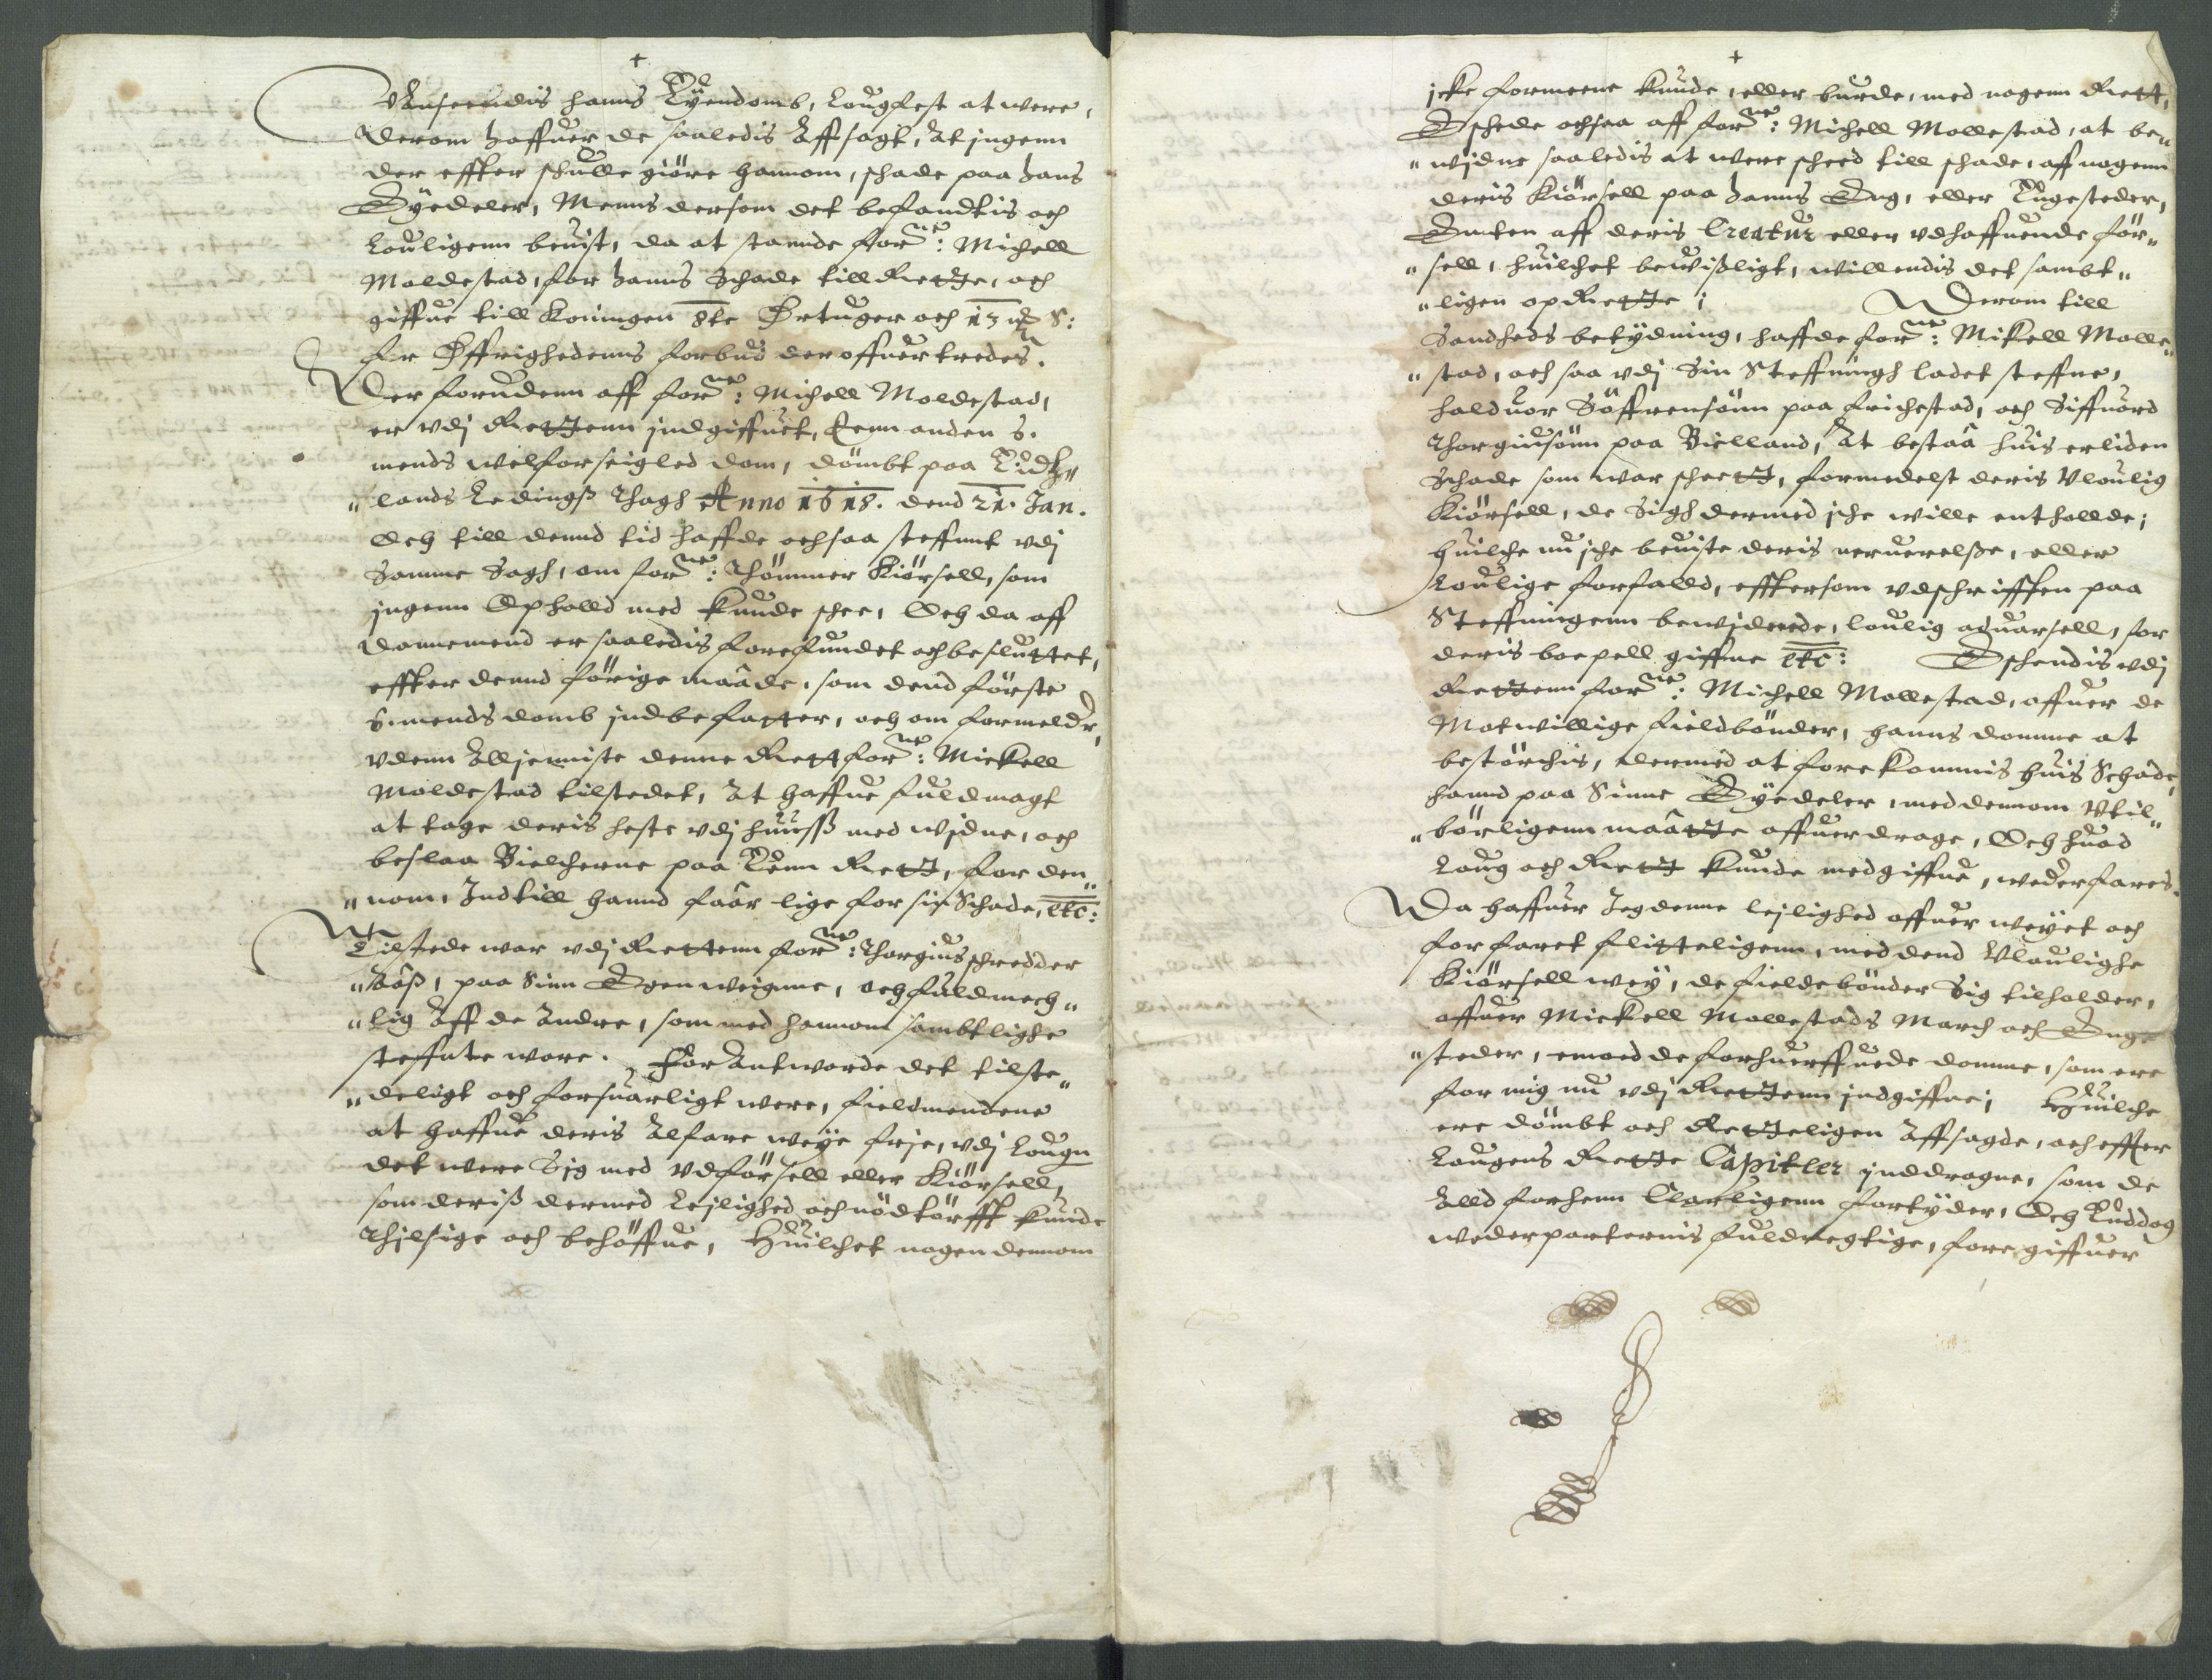 Anseendis hanns Eÿendomb, Lougfest at were,
Derom haffuer de saaledis Affsagt, At jngenn
der effter schulle giöre hannom, schade paa hans
Eÿedeler, Menns dersom det befandtis och
Louligenn beuist, da at stannde for.ne: Michell
Moldestad, for hanns Schade till Rette, och
giffue till Koningen 8te Örtuger och 13 S:
for Öffrighedenns forbud der offuertredes.
Der forudenn aff for.ne: Michell Moldestad,
er vdj Rettenn jndgiffuet, Eenn anden 6.
mends welforseigled dom, dömbt paa
" lands Ledingß Thogh Anno 1618. dend 21. Jan.
Och till dennd tid haffde ochsaa steffnnt vdj
Samme Sagh, om for.ne: Thömmer Kiörsell, som
jngenn Opholld med kunde schee, Och da aff
Dannemend er saaledis forefundet och besluttet,
effter dennd förige maade, som dend förste
6. mends domb jndbefatter, och om formelder,
vdenn Alljenniste denne Rett for.ne: Mickell
Moldestad tilstedet, At haffue fuldmagt
at tage deris heste vdj huusß med widne, och
beslaa Bielcherne paa Eenn Rett, for den"
" nom, Indtill hannd faar lige for sin Schade, etc:
Tilstede war vdj Rettenn for.ne: Thorgius schredder
" Aaß, paa Sinn Egen weignne, och fuldmech"
" tig Aff de Andre, som med hannom sambtlighe
steffnte wore. For Antworde det tilste"
" deligt och forsuarligt were, fieldmendene
at haffue deris Alfare weÿe frje, vdj Lougn
det were Sig med vdförsell eller Kiörsell,
som deriß dermed Lejlighed och nödtörfft kunde
Thilsige och behöffue, Huilchet nogen dennom
jcke formeene kunde, eller burde, med nogenn Rett,
Eschede ochsaa aff for.ne: Michell Mollestad, at be"
" widne saaledis at were scheed till schade, aff nogenn
deris Kiörsell paa hanns Eng, eller Engesteder,
Enten aff deris Creatur eller vdhaffuende för"
" sell, huilchet bewißligt, willendis det sambt"
" ligen oprette; Derom till
Sandheds betÿdning, haffde for.ne: Mikell Molle"
" stad, och saa vdj Sin Steffningh ladet steffne,
Halduor Söffrensönn paa Frichestad, och Siffuord
Thorgiusönn paa Bielland, At bestaa huis erliden
Schade som war scheett, formedelst deris Vloulig
Kiörsell, de Sigh dermed jche wille enthollde;
Huilche nu jche beuiste deris neruerelße, eller
Loulige forfalld, efftersom vdschrifften paa
Steffningenn bewiderede, loulig aduarsell, for
deris boepell giffne etc: Eschendis vdj
Rettenn for.ne: Michell Mollestad, offuer de
Motwillige Fieldbönder, hanns domme at
bestörchis, dermed at forekommis huis Schade,
hannd paa Sinne Eÿedeler, med dennom Vtil"
" börligenn maatte offuerdrage, Och huad
Loug och Rett kunde medgiffue, wederfares.
Da haffuer Jeg denne lejlighed offuer weÿet och
forfaret flitteligenn, med dend Vloulighe
Kiörsell weÿ, de fieldebönder Sig tilholder,
offuer Mickell Mollestads March och Enge
" steder, emoed de forhuerffuede domme, som ere
for mig nu vdj Rettenn jndgiffne; Huilche
ere dömbt och Retteligen Affsagde, och effter
Lougens Rette Capitler jnddragne, som de
Alld forhenn Clarligenn fortÿder, Och Enddog
wederparternis fuldmegtige, fore giffuer